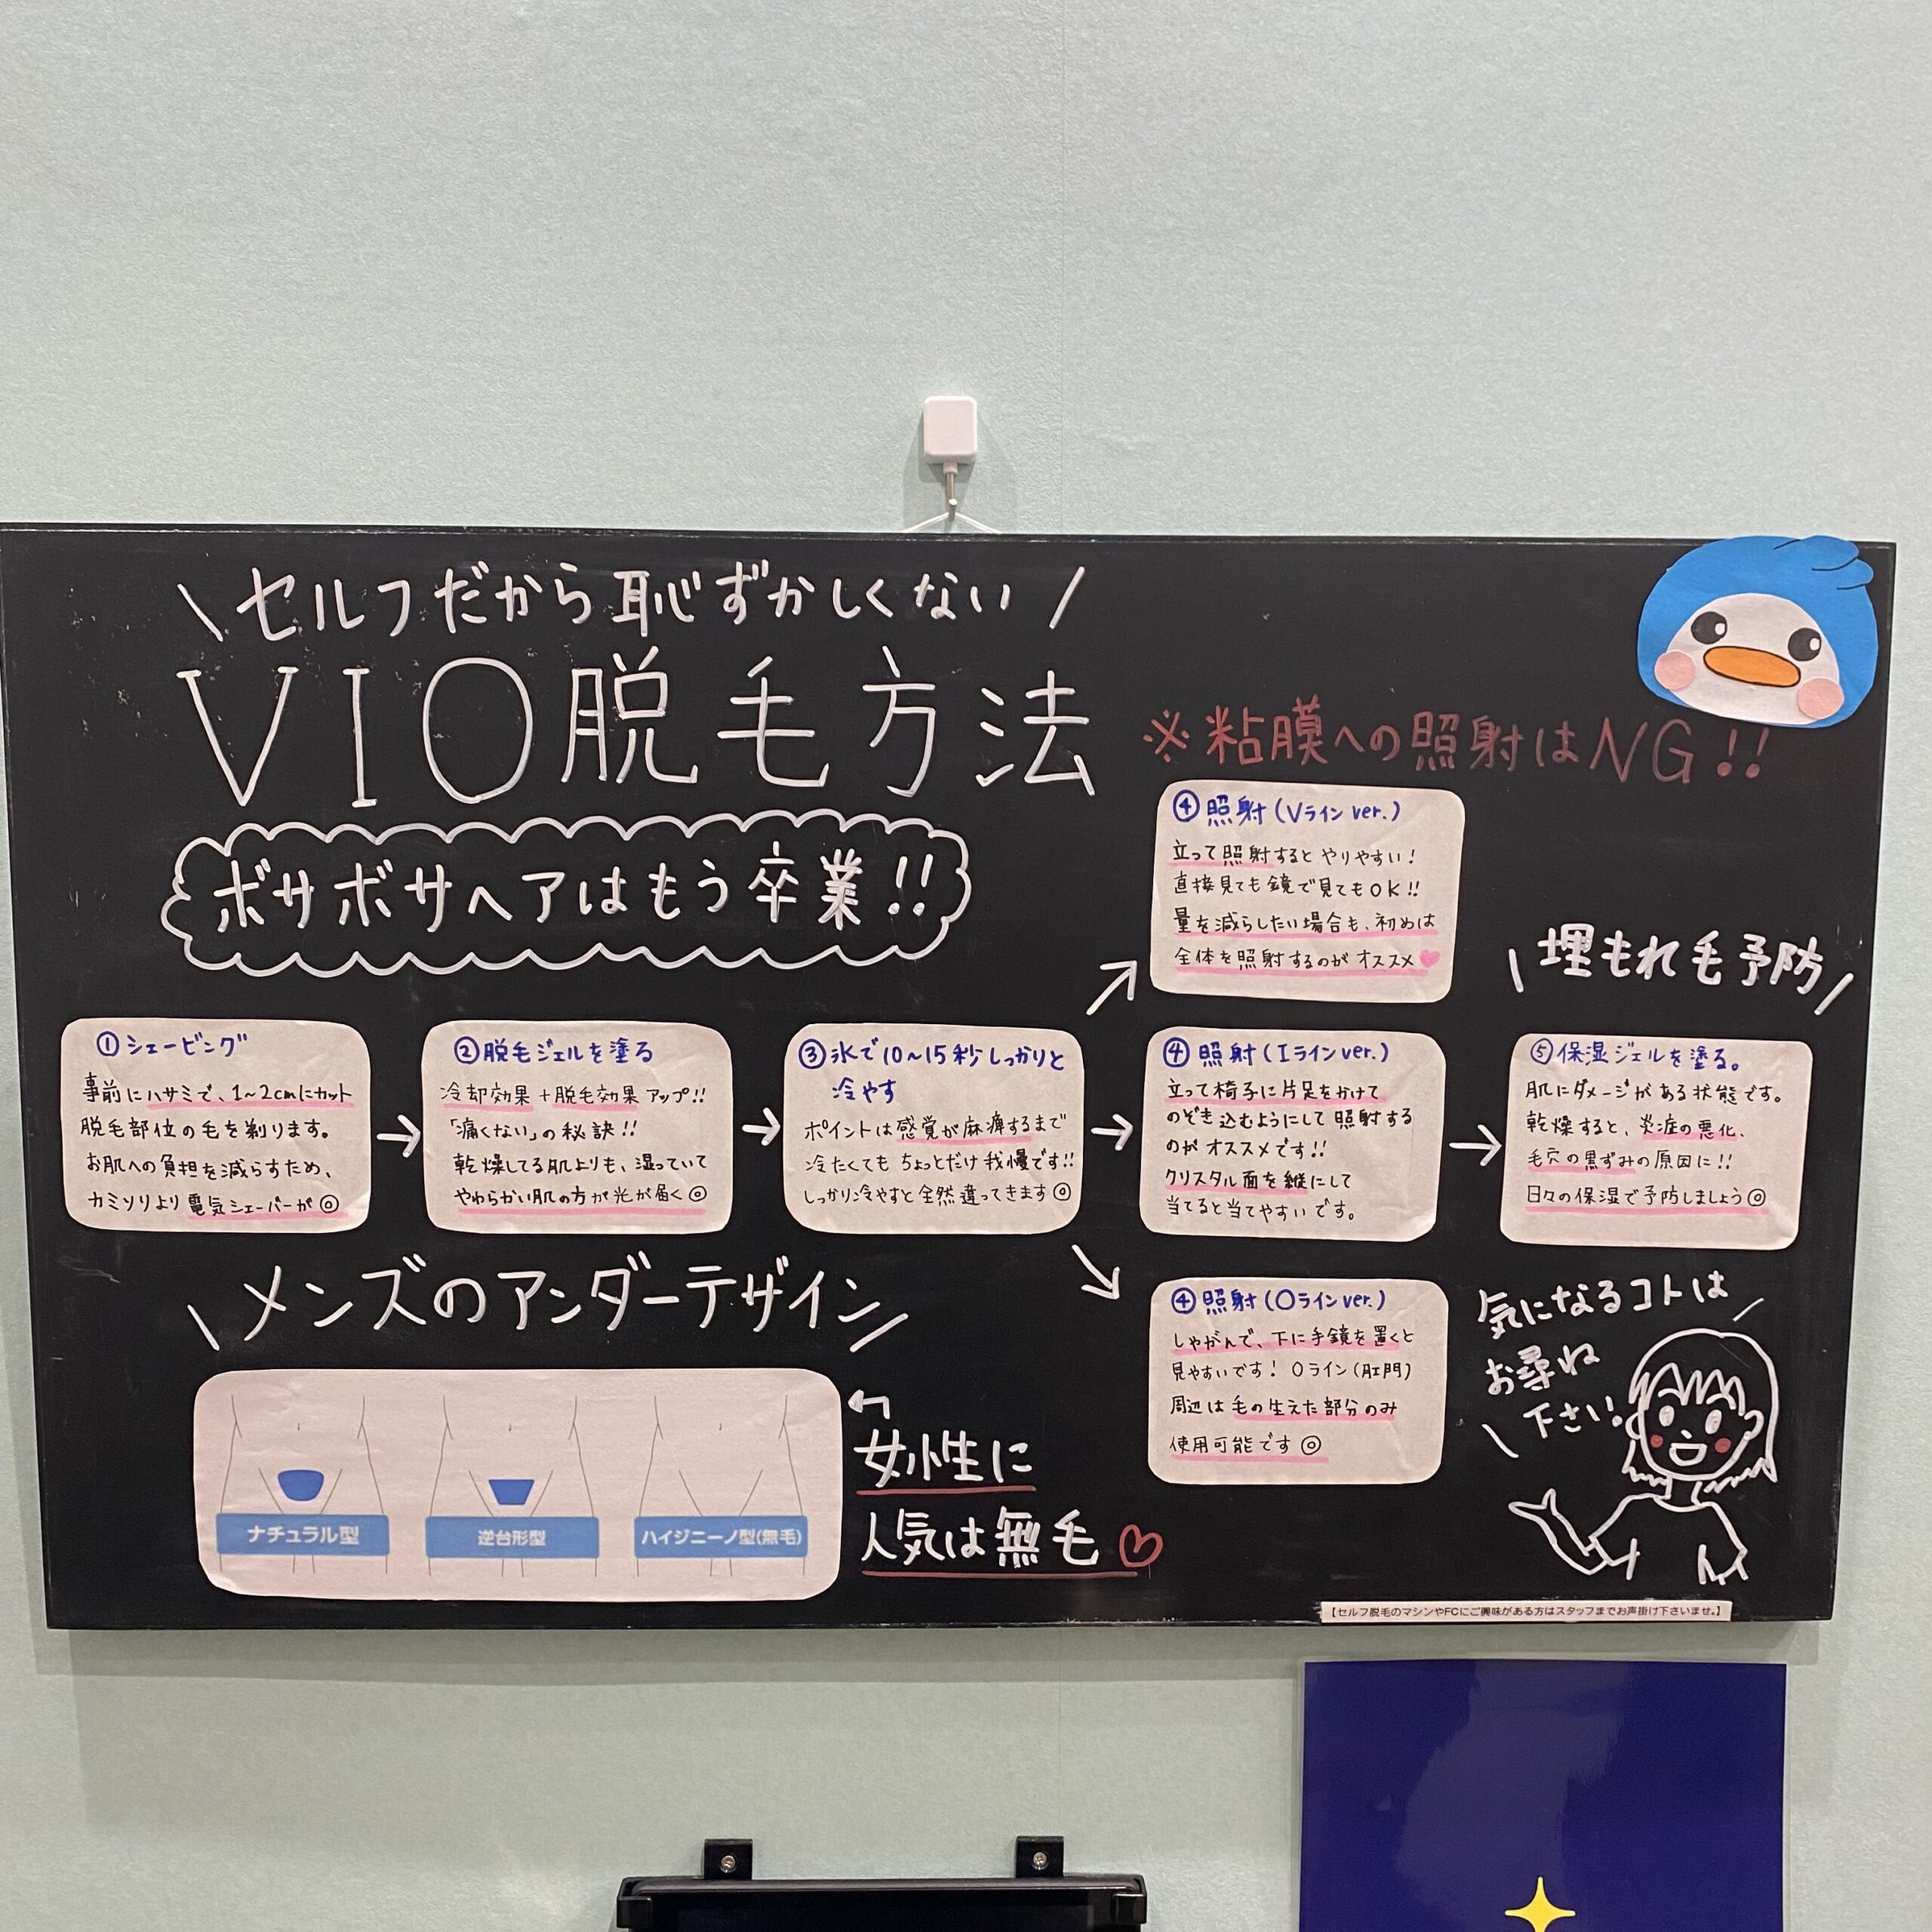 \ セルフだから恥ずかしくない /
VIO脱毛方法
※粘膜への照射はNG!!
ボサボサヘアはもう卒業!!
①シェービング
事前にハサミで、1~2cmにカット
脱毛部位の毛を剃ります。
お肌への負担を減らすため、
カミソリより電気シェーバーが◎
②脱毛ジェルを塗る
冷却効果+脱毛効果アップ!!
「痛くない」の秘訣!!
乾燥してる肌よりも、湿っていて
やわらかい肌の方が光が届く◎
③氷で10~15秒しっかりと
冷やす
ポイントは感覚が麻痺するまで
冷たくてもちょっとだけ我慢です!!
しっかり冷やすと全然違ってきます◎
④照射(Vラインver.)
立って照射するとやりやすい!
直接見ても鏡で見てもOK!!
量を減らしたい場合も、初めは
全体を照射するのがオススメ♥
④照射(Iラインver.)
立って椅子に片足をかけて
のぞき込むようにして照射する
のがオススメです!!
クリスタル面を縦にして
当てると当てやすいです。
④照射(Oラインver.)
しゃがんで、下に手鏡を置くと
見やすいです! Oライン(肛門)
周辺は毛の生えた部分のみ
使用可能です◎
\ 埋もれ毛予防 /
⑤保湿ジェルを塗る。
肌にダメージがある状態です。
乾燥すると、炎症の悪化、
毛穴の黒ずみの原因に!!
日々の保湿で予防しましょう◎
\ メンズのアンダーデザイン /
ナチュラル型
逆台形型
ハイジニーノ型(無毛)
女性に
人気は無毛♡
気になるコトは
お尋ね
下さい!
【セルフ脱毛のマシンやFCにご興味がある方はスタッフまでお声掛け下さいませ。】